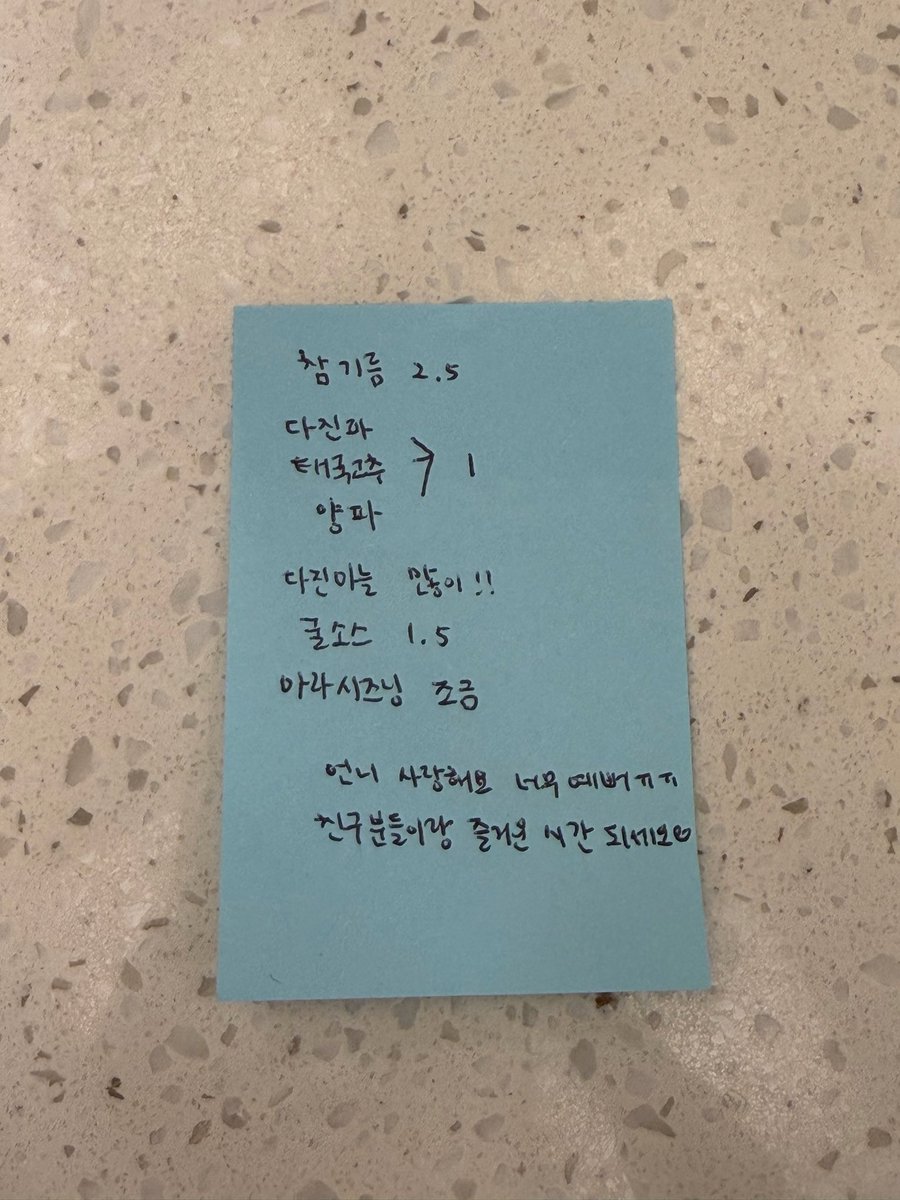 참기름 2.5
다진파
태국고추 > 1
양파
다진마늘 많이!!
굴소스 1.5
마라시즈닝 조금
언니 사랑해요 너무예뻐ㅠㅠ
친구분들이랑 즐거운 시간 되세요♡